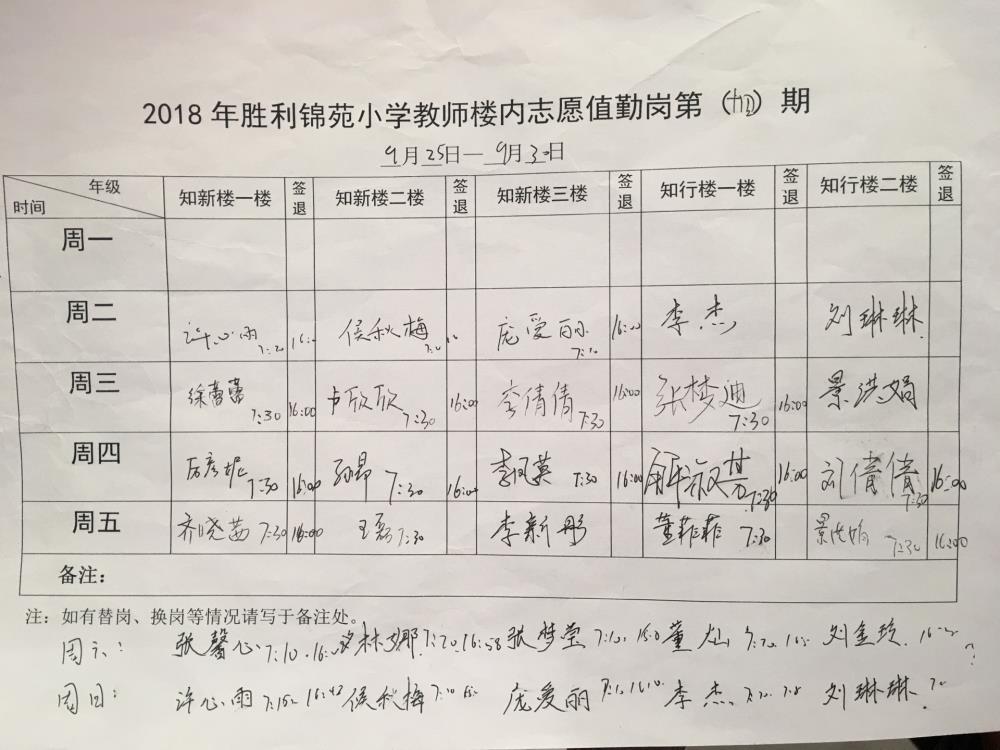 2018年胜利锦苑小学教师楼内志愿值勤岗第（十四）期
9月25日—9月30日
年级 时间 知新楼一楼 签退 知新楼二楼 签退 知新楼三楼 签退 知行楼一楼 签退 知行楼二楼 签退
周一
周二 许心雨 7:20 16:0 侯秋梅 庞爱丽 7:10 16:00 李杰 刘琳琳
周三 徐蕾蕾 7:30 16:00 卢欣欣 7:30 16:00 李倩倩 7:30 16:00 张梦迪 7:30 16:00 景洪娟
周四 厉彦妮 7:30 16:00 孙昂 7:30 16:00 李凤英 7:30 16:00 7:30 16:00 刘倩倩 7:30 16:00
周五 齐晓茜 7:30 16:00 王磊 7:30 李新彤 董菲菲 7:30 景洪娟 7:30 16:00
备注：
注：如有替岗、换岗等情况请写于备注处。
周六： 张馨心 7:10 林娜 7:20 16:58 张梦莹 7:10 董灿 7:20 刘金玲
周日： 许心雨 侯秋梅 7:10 庞爱丽 李杰 刘琳琳